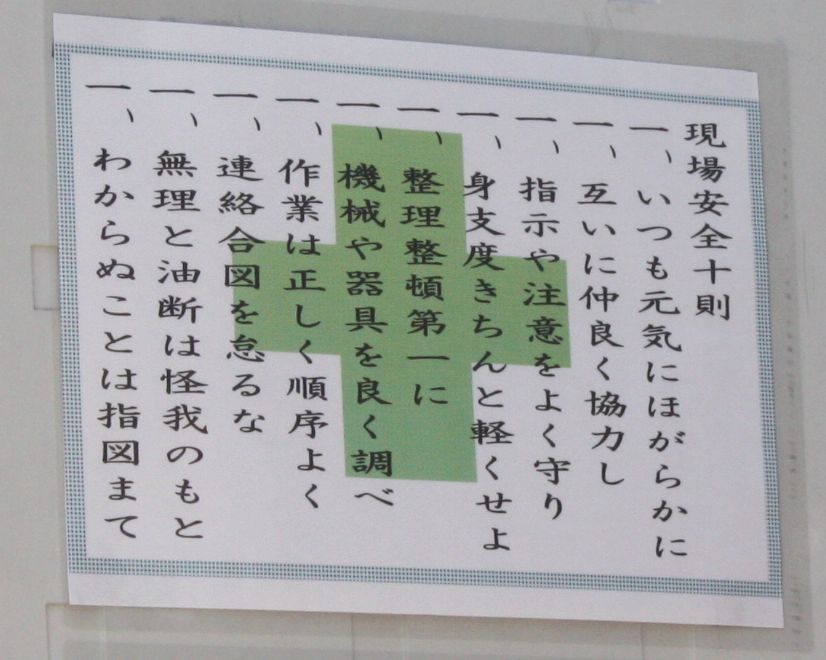 現場安全十則
一、いつも元気にほがらかに
一、互いに仲良く協力し
一、指示や注意をよく守り
一、身支度きちんと軽くせよ
一、整理整頓第一に
一、機械や器具を良く調べ
一、作業は正しく順序よく
一、連絡合図を怠るな
一、無理と油断は怪我のもと
一、わからぬことは指図まて